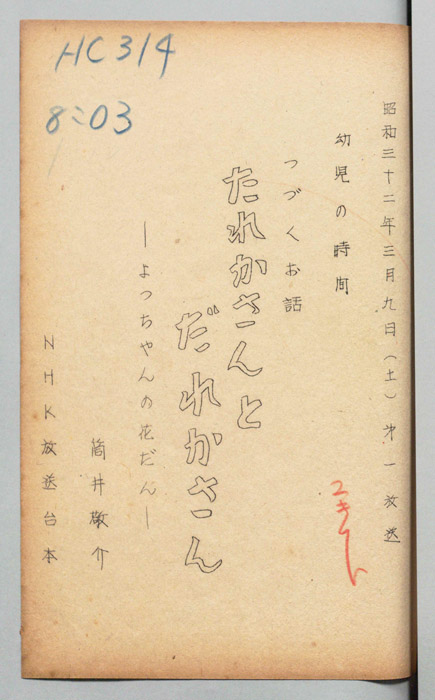 HC314
8:03
昭和三十二年三月九日(土)第一放送
幼児の時間
つづくお話
たれかさんと
だれかさん
―よっちゃんの花だん―
筒井敬介
NHK放送台本